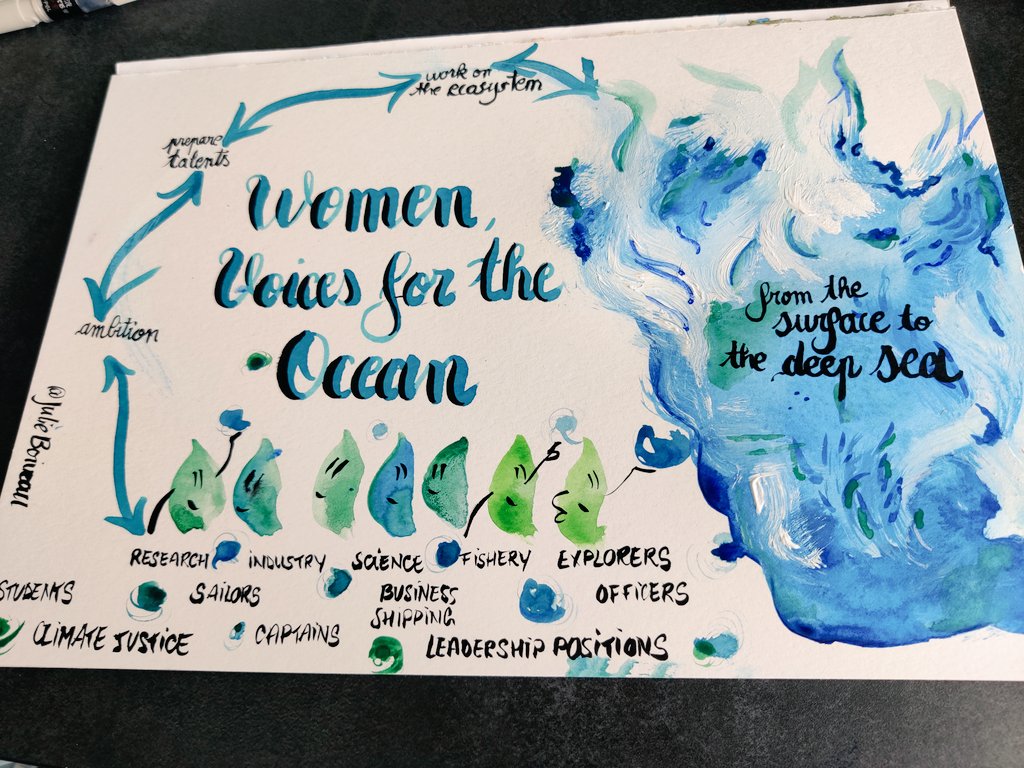 work on
the ecosystem
prepare
talents
Women,
Voices for the
Ocean
ambition
from the
surface to
the deep sea
@Julie Boiveau
RESEARCH INDUSTRY SCIENCE FISHERY EXPLORERS
STUDENTS SAILORS BUSINESS OFFICERS
SHIPPING
CLIMATE JUSTICE CAPTAINS LEADERSHIP POSITIONS